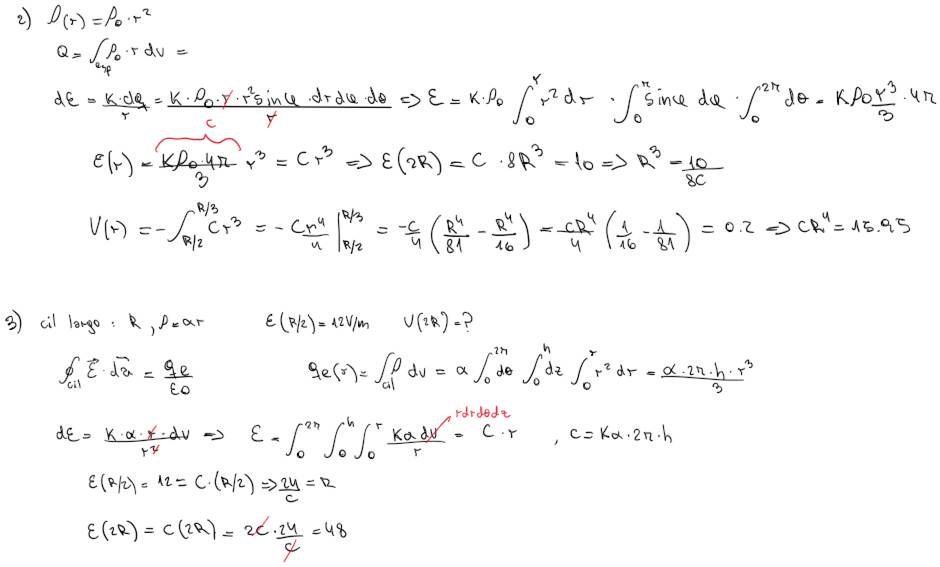 2) ρ(r) = ρ₀ · r²
Q = ∫esf ρ₀ · r dv =
dE = K·dq/r = K·ρ₀·r·r² sinφ · dr dφ · dθ / r => E = K·ρ₀ ∫₀^r r² dr · ∫₀^π sinφ dφ · ∫₀^2π dθ = Kρ₀ r³/3 · 4π
c
E(r) = Kρ₀·4π/3 r³ = Cr³ => E(2R) = C · 8R³ = 10 => R³ = 10/8C
V(r) = -∫_{R/2}^{R/3} Cr³ = -Cr⁴/4 |_{R/2}^{R/3} = -C/4 (R⁴/81 - R⁴/16) = CR⁴/4 (1/16 - 1/81) = 0.2 => CR⁴ = 15.95
3) cil largo : R , ρ = αr E(R/2) = 12V/m V(2R) = ?
∮cil E⃗ · da⃗ = qe/ε0 qe(r) = ∫cil ρ dv = α ∫₀^2π dθ ∫₀^h dz ∫₀^r r² dr = α·2π·h·r³/3
rdrdθdz
dE = K·α·r·dv/r² => E = ∫₀^2π ∫₀^h ∫₀^r Kα dv/r = C · r , c = Kα·2π·h
E(R/2) = 12 = C·(R/2) => 24/C = R
E(2R) = C(2R) = 2C · 24/C = 48